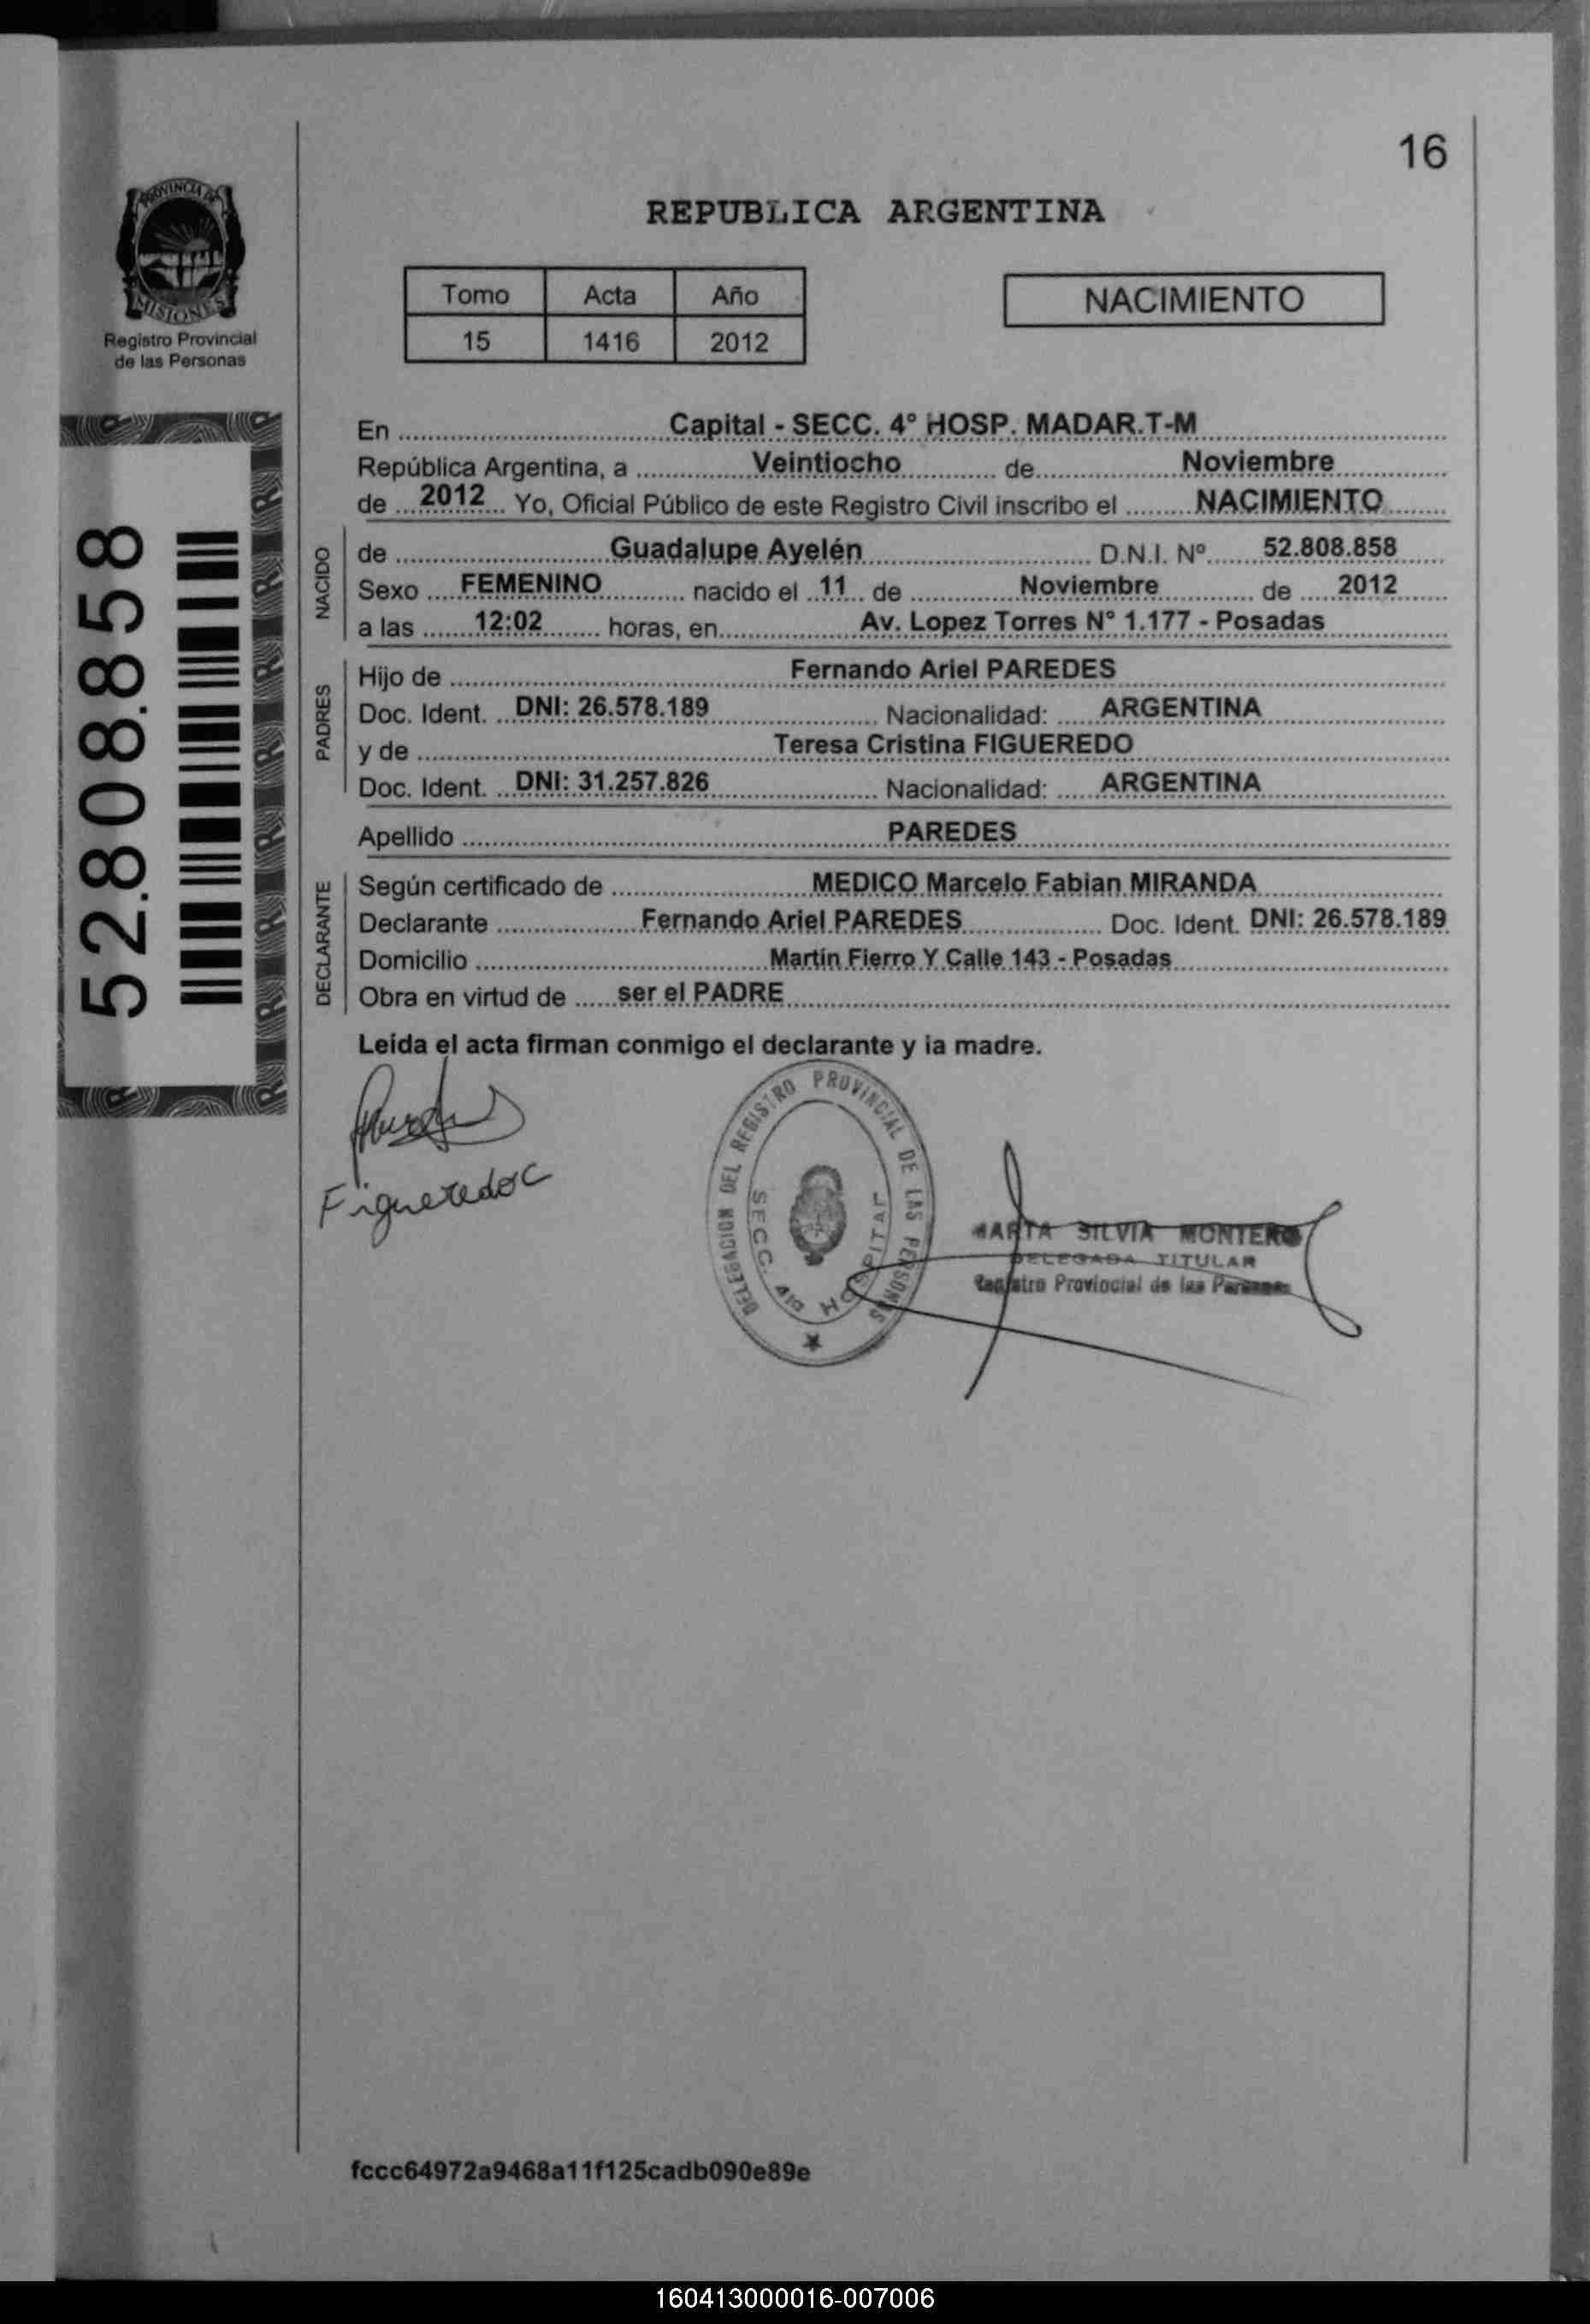 16
PROVINCIA DE
MISIONES
Registro Provincial
de las Personas
REPUBLICA ARGENTINA
Tomo Acta Año
15 1416 2012
NACIMIENTO
52.808.858
En Capital - SECC. 4° HOSP. MADAR.T-M
República Argentina, a Veintiocho de Noviembre
de 2012 Yo, Oficial Público de este Registro Civil inscribo el NACIMIENTO
NACIDO
de Guadalupe Ayelén D.N.I. Nº 52.808.858
Sexo FEMENINO nacido el 11 de Noviembre de 2012
a las 12:02 horas, en Av. Lopez Torres N° 1.177 - Posadas
PADRES
Hijo de Fernando Ariel PAREDES
Doc. Ident. DNI: 26.578.189 Nacionalidad: ARGENTINA
y de Teresa Cristina FIGUEREDO
Doc. Ident. DNI: 31.257.826 Nacionalidad: ARGENTINA
Apellido PAREDES
DECLARANTE
Según certificado de MEDICO Marcelo Fabian MIRANDA
Declarante Fernando Ariel PAREDES Doc. Ident. DNI: 26.578.189
Domicilio Martín Fierro Y Calle 143 - Posadas
Obra en virtud de ser el PADRE
Leída el acta firman conmigo el declarante y la madre.
DELEGACION DEL REGISTRO PROVINCIAL DE LAS PERSONAS
SECC. 4ta HOSPITAL
MARTA SILVIA MONTERO
DELEGADA TITULAR
Registro Provincial de las Personas
fccc64972a9468a11f125cadb090e89e
160413000016-007006